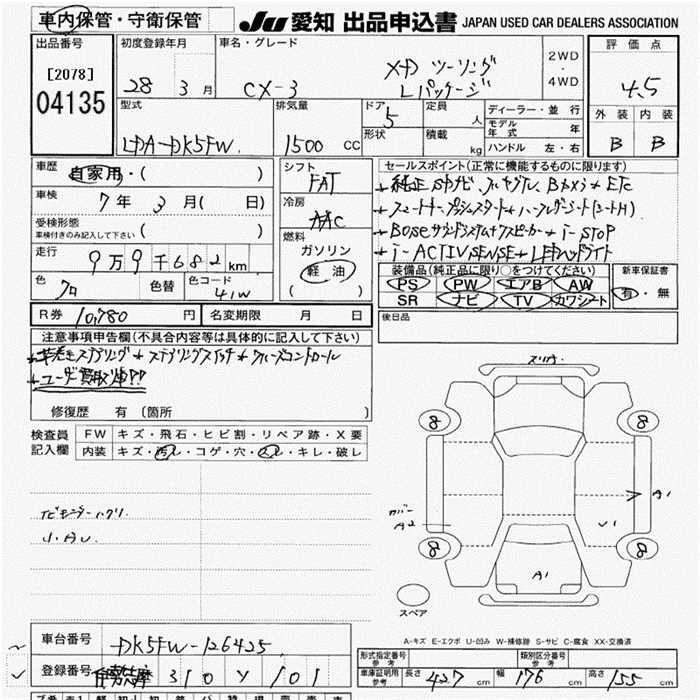 車内保管・守衛保管
JU 愛知 出品申込書 JAPAN USED CAR DEALERS ASSOCIATION
出品番号 [2078] 04135
初度登録年月 28年 3月
車名・グレード CX-3 XD ツーリング Lパッケージ
2WD
4WD
評価点 4.5
外装 内装
B B
型式 LDA-DK5FW
排気量 1500 CC
ドア 5
形状
定員 人
積載 kg
ディーラー・並行
モデル年式 年
ハンドル 左・右
車歴 自家用・( )
車検 7年 3月( 日)
受検形態
車検付きのみ記入して下さい ( )
走行 9万9千682km
色 クロ 色替 色コード 41W
シフト FAT
冷房 AAC
燃料
ガソリン
軽油
( )
セールスポイント(正常に機能するものに限ります)
+BOSEサウンドシステム+7スピーカー+i-STOP
+i-ACTIVSENSE+LEDヘッドライト
装備品(純正品に限り○をつけてください)
PS PW エアB AW
SR ナビ TV カワシート
新車保証書
有・無
R券 10,780円 名変期限 月 日
後日品
注意事項申告欄(不具合内容等は具体的に記入して下さい)
+革巻きステアリング+ステアリングスイッチ+クルーズコントロール
+ユーザー買取車!!
修復歴 有(箇所 )
検査員記入欄
FW キズ・飛石・ヒビ割・リペア跡・X要
内装 キズ・汚レ・コゲ・穴・スレ・キレ・破レ
8 8
カバー A2
A1
8 8
A1
スペア
A-キズ E-エクボ U-凹み W-補修跡 S-サビ C-腐食 XX-交換済
車台番号 DK5FW-126425
登録番号 310 101
形式指定番号 参考
類別区分番号 参考
車庫証明用 参考 長さ 427 cm 幅 176 cm 高さ 155 cm